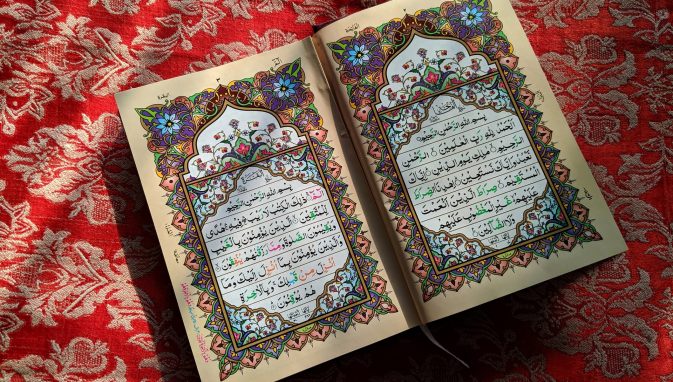 بِسْمِ اللهِ الرَّحْمٰنِ الرَّحِيْمِ
اَلْحَمْدُ لِلّٰهِ رَبِّ الْعٰلَمِيْنَ الرَّحْمٰنِ
الرَّحِيْمِ مٰلِكِ يَوْمِ الدِّيْنِ اِيَّاكَ
نَعْبُدُ وَاِيَّاكَ نَسْتَعِيْنُ اِهْدِنَا الصِّرَاطَ
الْمُسْتَقِيْمَ صِرَاطَ الَّذِيْنَ اَنْعَمْتَ
عَلَيْهِمْ غَيْرِ الْمَغْضُوْبِ عَلَيْهِمْ
وَلَا الضَّالِّيْنَ
بِسْمِ اللهِ الرَّحْمٰنِ الرَّحِيْمِ
الٓمّٓ ذٰلِكَ الْكِتٰبُ لَا رَيْبَ فِيْهِ هُدًى
لِّلْمُتَّقِيْنَ الَّذِيْنَ يُؤْمِنُوْنَ بِالْغَيْبِ
وَيُقِيْمُوْنَ الصَّلٰوةَ وَمِمَّا رَزَقْنٰهُمْ يُنْفِقُوْنَ
وَالَّذِيْنَ يُؤْمِنُوْنَ بِمَا اُنْزِلَ اِلَيْكَ وَمَا
اُنْزِلَ مِنْ قَبْلِكَ وَبِالْاٰخِرَةِ
هُمْ يُوْقِنُوْنَ